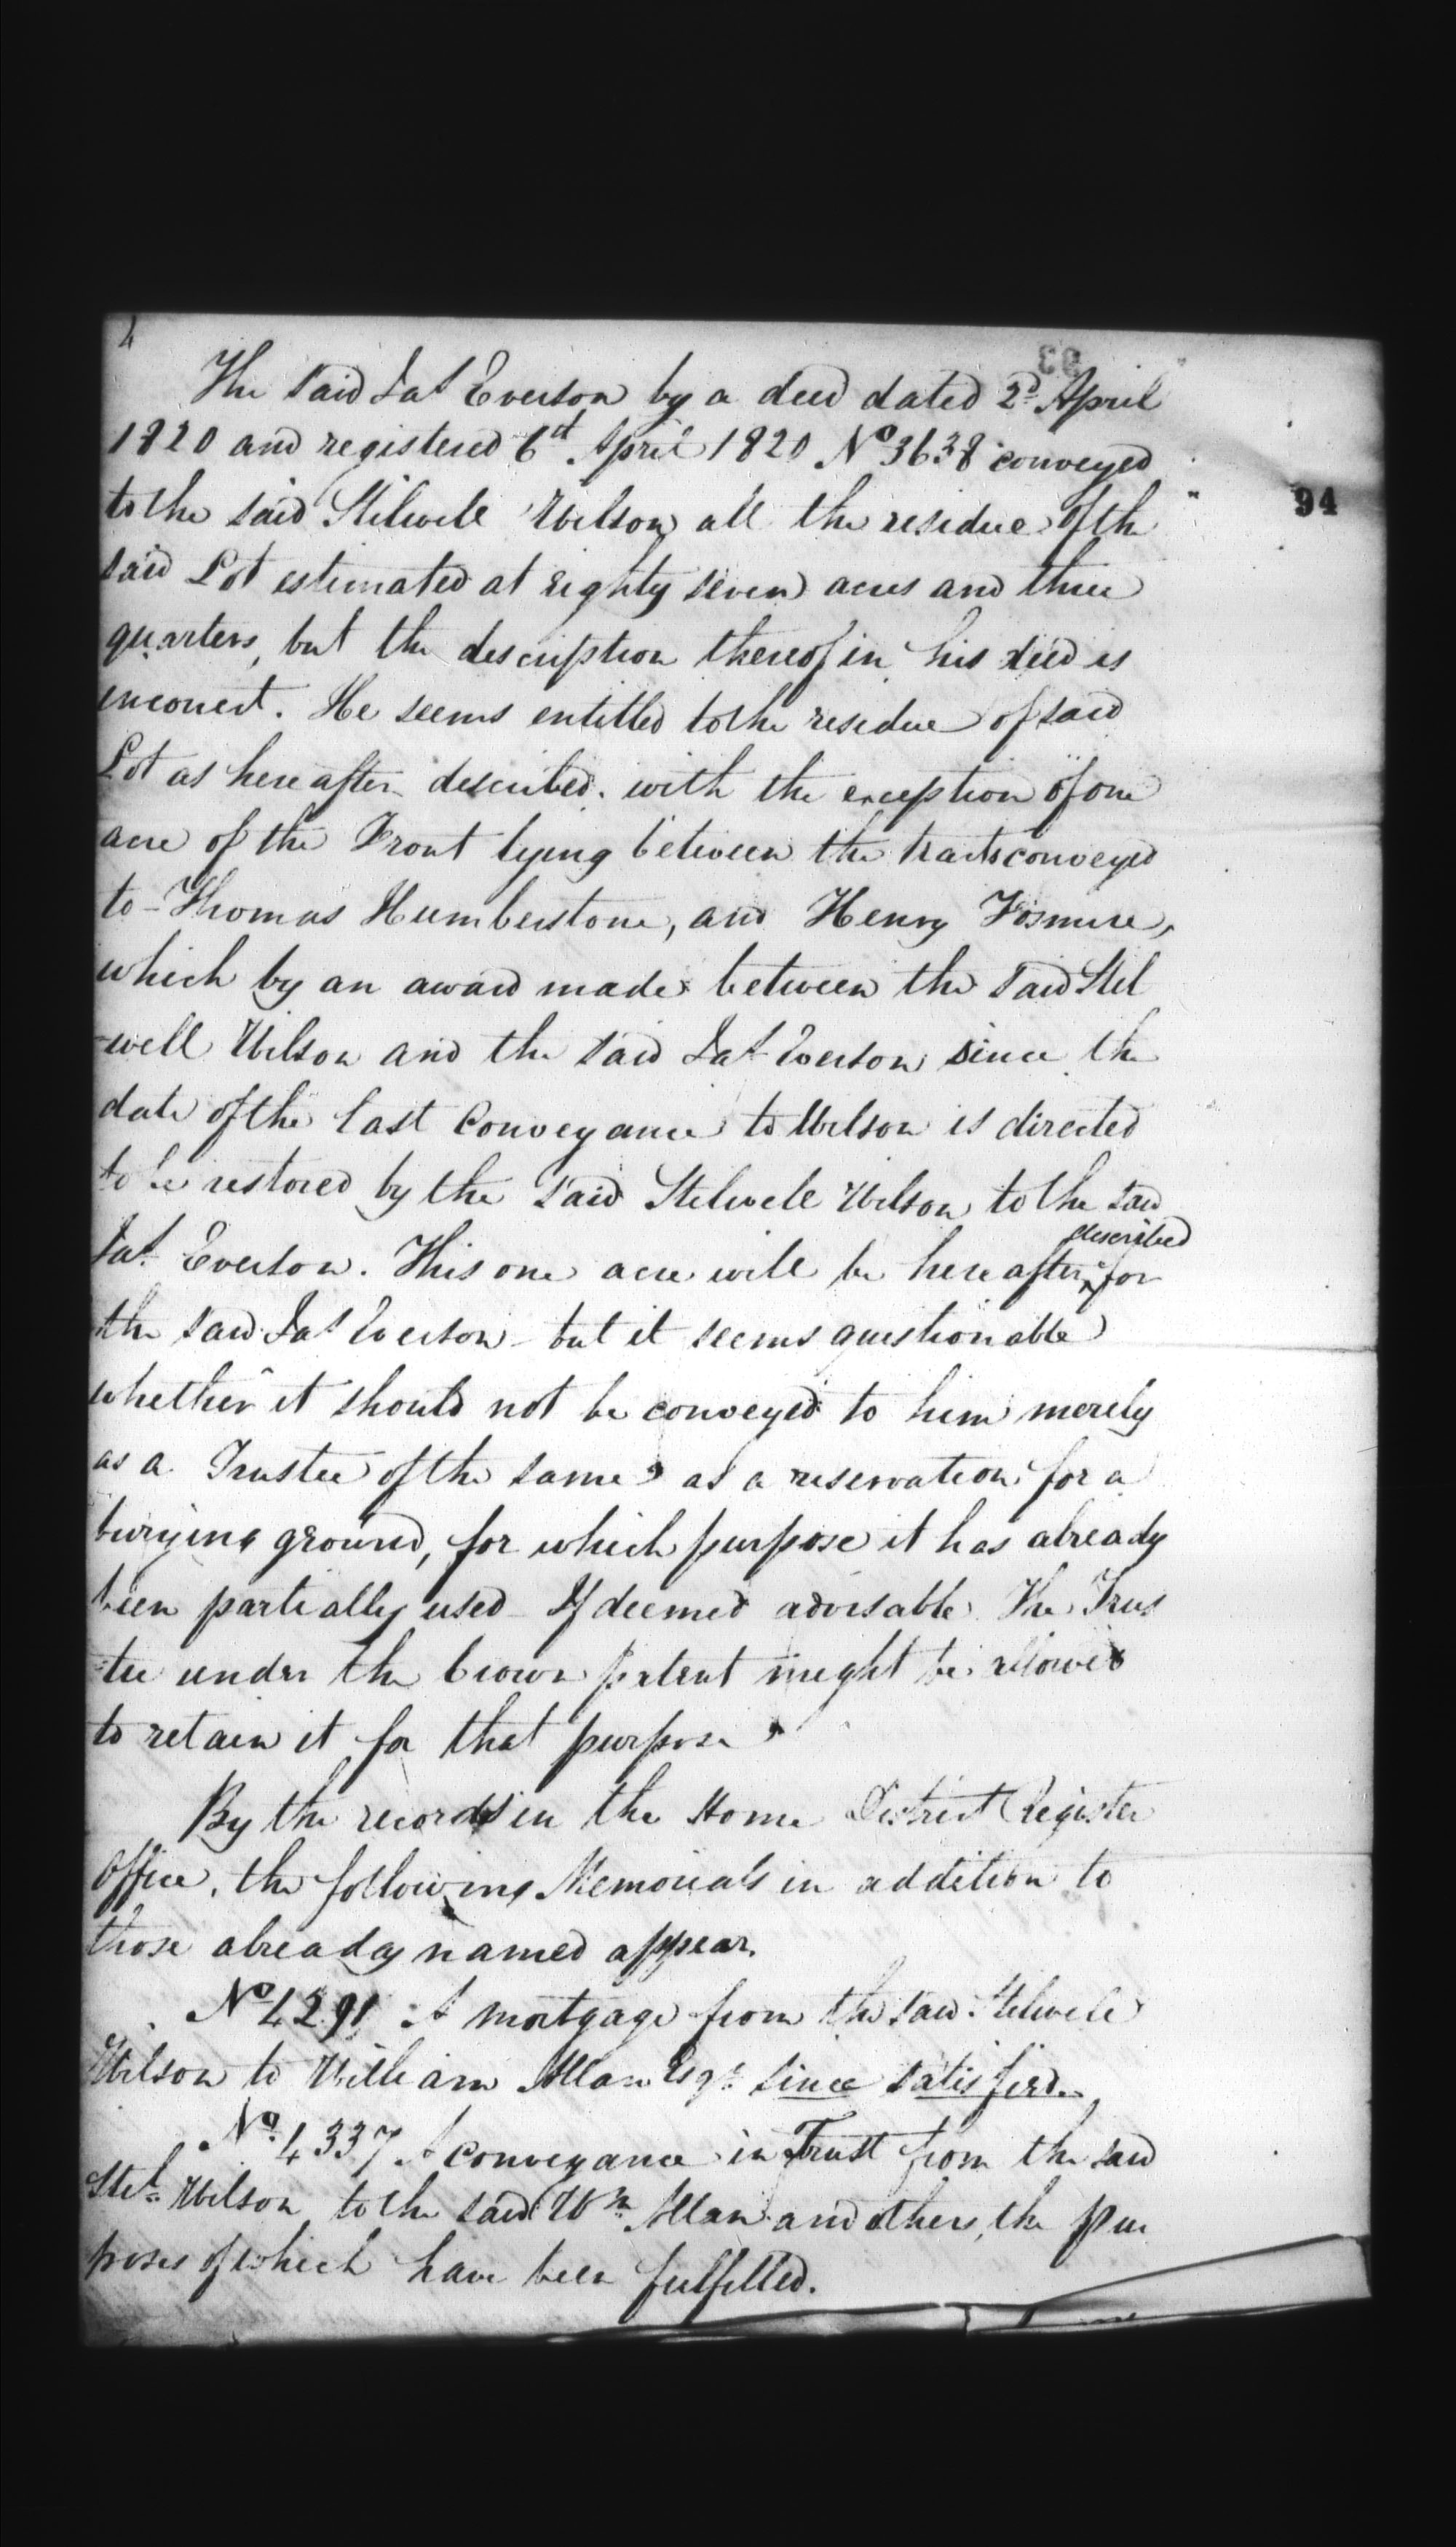 4
93
The said Jas Everson by a deed dated 2d April
1820 and registered 6th April 1820 No 3638 conveyed
94
to the said Stilwell Wilson all the residue of the
said Lot estimated at eighty seven acres and three
quarters, but the description thereof in his deed is
incorrect. He seems entitled to the residue of said
Lot as hereafter described. with the exception of one
acre of the Front lying between the tracts conveyed
to Thomas Humberstone, and Henry Vosmire,
which by an award made between the said Stil
-well Wilson and the said Jas Everson since the
date of the last Conveyance to Wilson is directed
to be restored by the said Stilwell Wilson to the said
described
Jas Everson. This one acre will be hereafter ^ for
the said Jas Everson - but it seems questionable
whether it should not be conveyed to him merely
as a Trustee of the same as a reservation for a
burying ground, for which purpose it has already
been partially used - If deemed advisable The Trus
-tee under the Crown patent might be allowed
to retain it for that purpose
By the records in the Home District Register
Office, the following Memorials in addition to
those already named appear.
No 4291 A mortgage from the said Stilwell
Wilson to William Allan Esqr since satisfied.
No 4337 A conveyance in Trust from the said
Stil Wilson to the said Wm Allan and others, the pur
poses of which have been fulfilled.